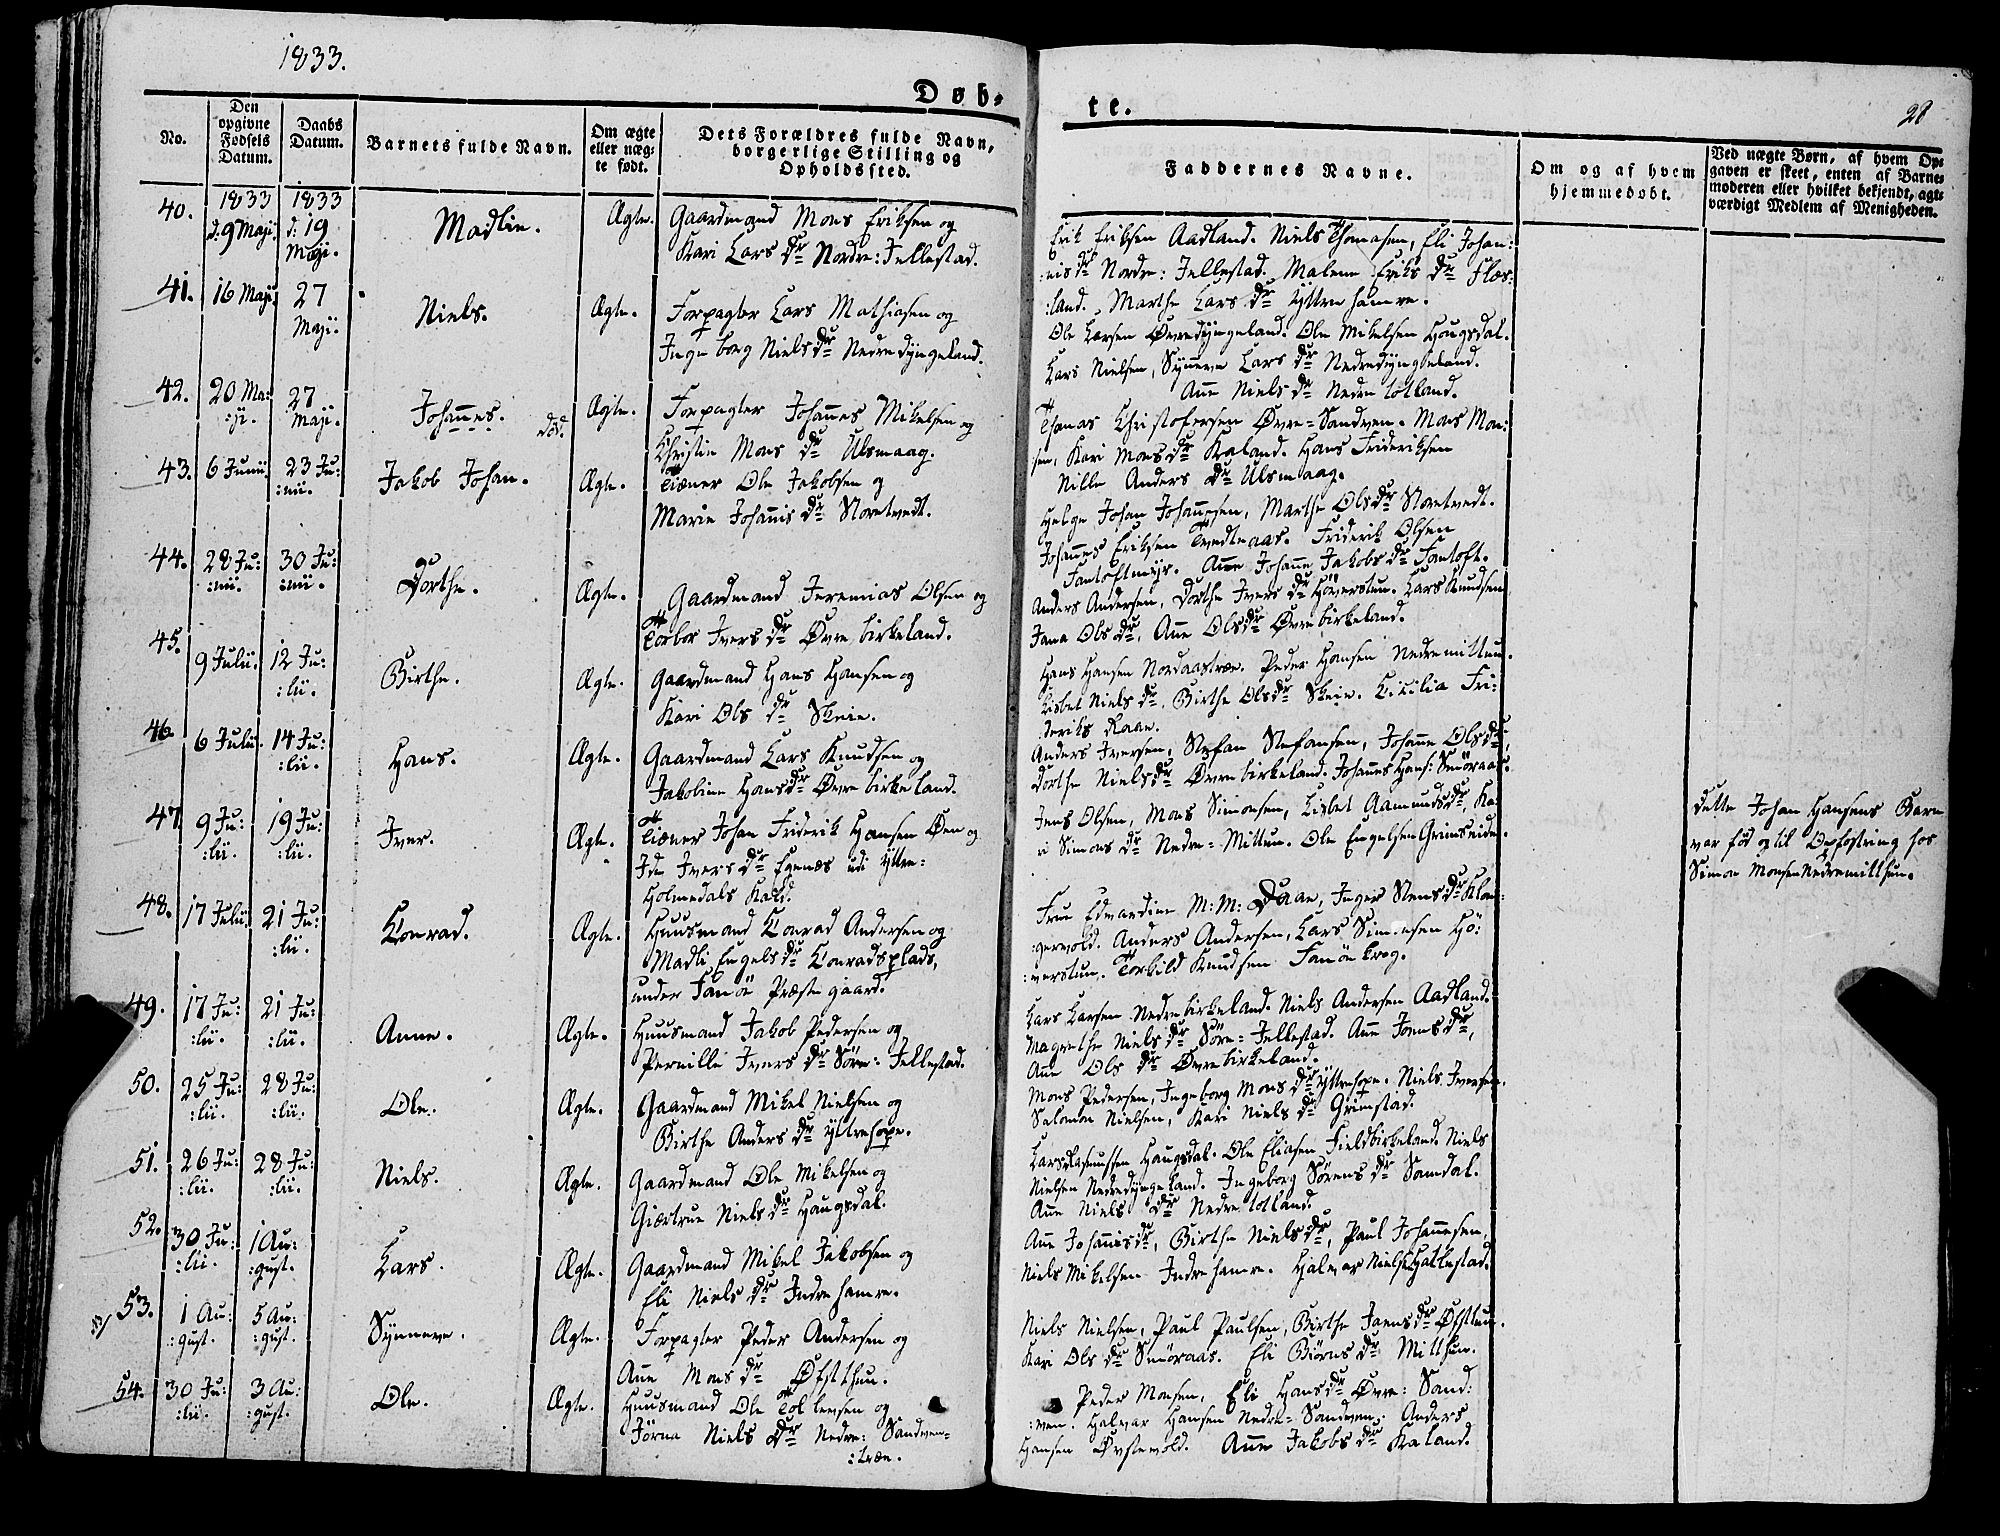 1833.
Døb-
te.
28
No.
Den opgivne Fødsels Datum.
Daabs Datum.
Barnets fulde Navn.
Om ægte eller nægte født.
Dets Forældres fulde Navn, borgerlige Stilling og Opholdssted.
Faddernes Navne.
Om og af hvem hjemmedøbt.
Ved nægte Børn, af hvem Opgaven er skeet, enten af Barnemoderen eller hvilket bekjendt, agtværdigt Medlem af Menigheden.
1833 1833
40. d: 9 Maji. d: 19 Maji. Madlin. Ægte. Gaardmand Mons Eriksen og
Kari Lars Dr Nordre: Jellestad.
Erik Eriksen Aadland. Niels Thomasen, Eli Johan:
:nis Dr Nordre: Jellestad. Malene Eriks Dr Fles:
:land. Marthe Lars Dr Yttrehamre.
41. 16 Maji. 27 Maji. Niels. Ægte. Forpagter Lars Mathiasen og
Ingeborg Niels Dr Nedredyngeland.
Ole Larsen Øvredyngeland. Ole Mikelsen Hougsdal.
Lars Nielsen, Synneve Lars Dr Nedredyngeland.
Anne Niels Dr Nedretotland.
42. 20 Ma: :ji. 27 Maji. Johannes. død. Ægte. Forpagter Johannes Mikelsen og
Christie Mons Dr Ulsmaag.
Thomas Christofersen Øvre=Sandven. Mons Mon:
sen, Kari Mons Dr Kaland. Hans Frideriksen
Nille Anders Dr Ulsmaag.
43. 6 Junii. 23 Ju: :nii. Jakob Johan. Ægte. Tiæner Ole Jakobsen og
Marie Johannis Dr Storetvedt.
Helge Johan Johannesen, Marthe Ols Dr Storetvedt.
Johannes Eriksen Tvedteaas. Friderik Olsen
Fantoftmyr. Anne Johanne Jakobs Dr Fantoft.
44. 28 Ju: :nii. 30 Ju: :nii. Dorthe. Ægte. Gaardmand Jeremias Olsen og
Torbor Ivers Dr Øvre birkeland.
Anders Andersen, Dorthe Ivers Dr Höverstun. Lars Knudsen
Jana Ols Dr, Anne Ols Dr Øvrebirkeland.
45. 9 Julii. 12 Ju: :lii. Birthe. Ægte. Gaardmand Hans Hansen og
Kari Ols Dr Skeie.
Hans Hansen Nordaastræe. Peder Hansen Nedremittun.
Lisbet Niels Dr, Birthe Ols Dr Skeie. Cicilia Fri:
:deriks Raae.
46. 6 Julii. 14 Ju: :lii. Hans. Ægte. Gaardmand Lars Knudsen og
Jakobine Hans Dr Øvre birkeland.
Anders Iversen, Stefan Stefansen, Johanne Ols Dr,
Dorthe Niels Dr Øvrebirkeland. Johannes Hans: Smöraas.
47. 9 Ju: :lii. 19 Ju: :lii. Iver. Ægte. Tiæner Johan Friderik Hansen Øen og
Ide Ivers Dr Egenæs udi Yttre=
Holmedals Kald.
Jens Olsen, Mons Simonsen, Lisbet Aamunds Dr, Ka:
ri Simons Dr Nedre=Mittun. Ole Engelsen Grimseide.
Dette Johan Hansens Barn
var fød og til Opfostring hos
Simon Monsen Nedremitthun.
48. 17 Julii. 21 Ju: :lii. Conrad. Ægte. Huusmand Conrad Andersen og
Madli Engels Dr Conradsplads,
under Fanöe Præstegaard.
Frue Edvardine M: M: Daae, Inger Stens Dr Klon:
:gervold. Anders Andersen, Lars Simonsen Hö:
:verstun. Torkild Knudsen Fanöe krog.
49. 17 Ju: :lii. 21 Ju: :lii. Anne. Ægte. Huusmand Jakob Pedersen og
Pernille Ivers Dr Söre: Jellestad.
Lars Larsen Nedrebirkeland. Niels Andersen Aadland.
Magrethe Niels Dr Söre=Jellestad. Anne Joens Dr,
Anne Ols Dr Øvrebirkeland.
50. 25 Ju: :lii. 28 Ju: :lii. Ole. Ægte. Gaardmand Mikel Nielsen og
Birthe Anders Dr Yttrehope.
Mons Pedersen, Ingeborg Mons Dr Yttrehope. Niels Iversen.
Salomon Nielsen, Kari Niels Dr Grimstad.
51. 26 Ju: :lii. 28 Ju: :lii. Niels. Ægte. Gaardmand Ole Mikelsen og
Giærtrue Niels Dr Haugsdal.
Lars Rasmussen Haugsdal. Ole Eliasen Fieldbirkeland. Niels
Nielsen Nedredyngeland. Ingeborg Sörens Dr Samdal.
Anne Niels Dr Nedretotland.
52. 30 Ju: :lii. 1 Au: :gust. Lars. Ægte. Gaardmand Mikel Jakobsen og
Eli Niels Dr Indrehamre.
Anne Johannis Dr, Birthe Niels Dr, Paul Johannesen,
Niels Mikelsen Indrehamre. Halvar Nielsen Hatlestad.
53. 1 Au: :gust. 5 Au: :gust. Synneve. Ægte. Forpagter Peder Andersen og
Anne Mons Dr Øfstthun.
Niels Nielsen, Paul Paulsen, Birthe Jaens Dr Øfsttun.
Kari Ols Dr Smöraas. Eli Biörns Dr Mitthun.
54. 30 Ju: :lii. 3 Au: :gust. Ole. Ægte. Huusmand Ole Tollevsen og
Jörna Niels Dr Nedre: Sandven=
:træe.
Peder Monsen, Eli Hans Dr Øvre: Sand:
:ven. Halvar Hansen Nedre=Sandven. Anders
Hansen Øvstevold. Anne Jakobs Dr Kaland.